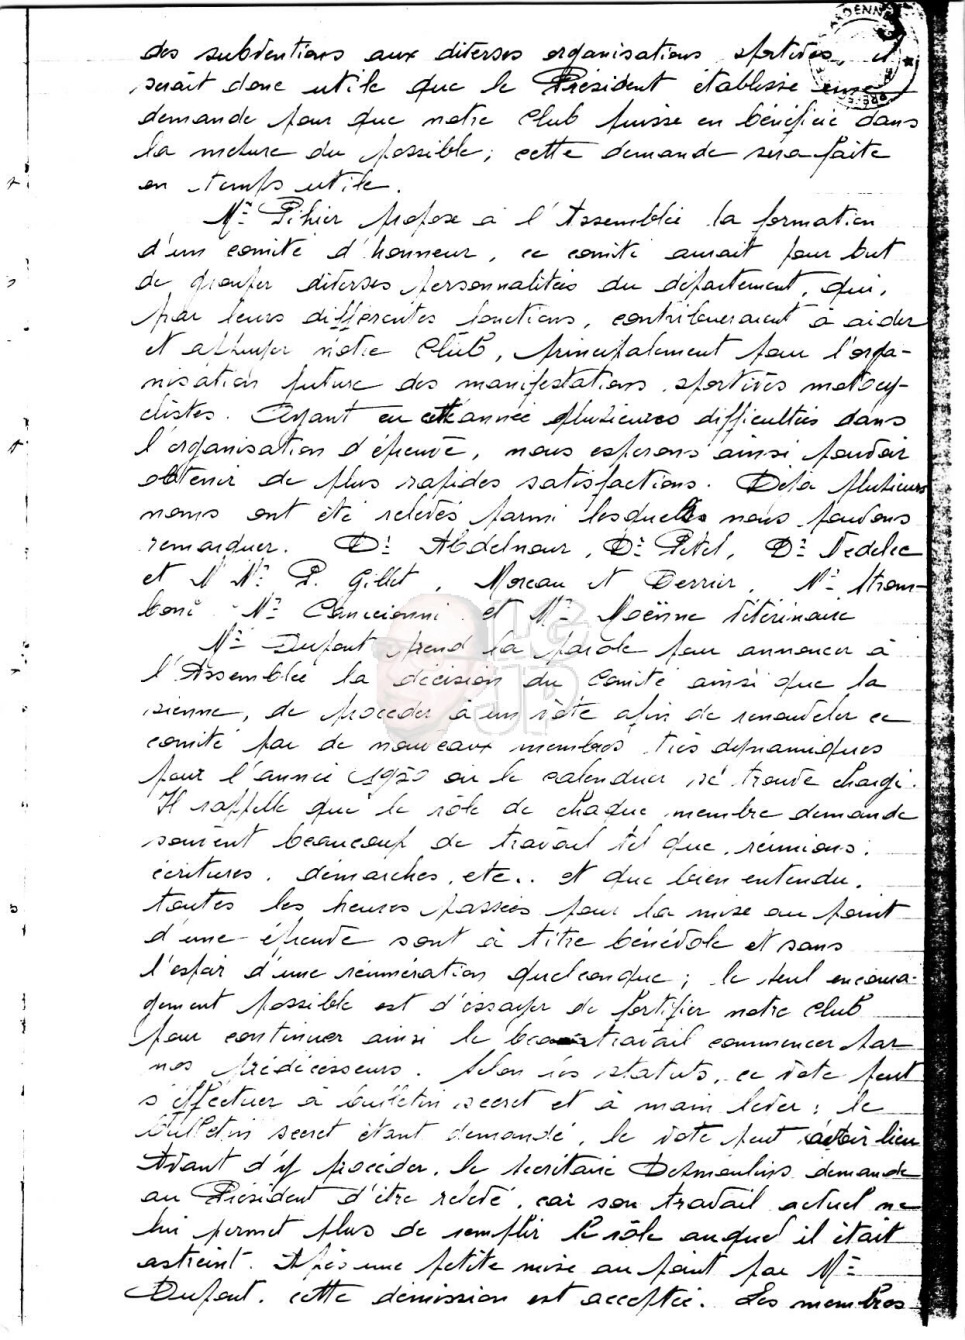 des subventions aux diverses organisations sportives, il
serait donc utile que le Président établisse une
demande pour que notre Club puisse en bénéficié dans
la mesure du possible ; cette demande sera faite
en temps utile.
Mr Pihier propose à l'Assemblée la formation
d'un comité d'honneur, ce comité aurait pour but
de grouper diverses personnalités du département, qui,
par leurs différentes fonctions, contribueraient à aider
et appuyer notre Club, principalement pour l'orga-
nisation future des manifestations sportives motocy-
clistes. Ayant eu cette année plusieures difficultées dans
l'organisation d'épreuve, nous esperons ainsi pouvoir
obtenir de plus rapides satisfactions. Déja plusieurs
noms ont été relevés parmi lesquels nous pouvons
remarquer. Dr Abdelnour, Dr Petel, Dr Nedelec
et M Mr P. Gillet, Moreau et Derrier, Mr Strom-
boni Mr Cancionni et Mr Moënne Vétérinaire
Mr Dupont prend la parole pour annoncer à
l'Assemblée la décision du Comité ainsi que la
sienne, de proceder à un vote afin de renouveler ce
comité par de nouveaux membres très dynamiques
pour l'année 1950 où le calendrier se trouve chargé.
Il rappelle que le rôle de chaque membre demande
souvent beaucoup de travail tel que, réunions,
écritures, démarches, etc.. et que bien entendu,
toutes les heures passées pour la mise au point
d'une épreuve sont à titre bénévole et sans
l'espoir d'une rénumération quelconque ; le seul encoura-
gement possible est d'essayer de fortifier notre Club
pour continuer ainsi le beau travail commencer par
nos prédécesseurs. Selon les statuts, ce vote peut
s'effectuer à bulletin secret et à main lever ; le
bulletin secret étant demandé, le vote peut avoir lieu
Avant d'y procéder, le secrétaire Desmoulins demande
au Président d'être relevé, car son travail actuel ne
lui permet plus de remplir le rôle auquel il était
astreint. Après une petite mise au point par Mr
Dupont, cette démission est acceptée. Les membres